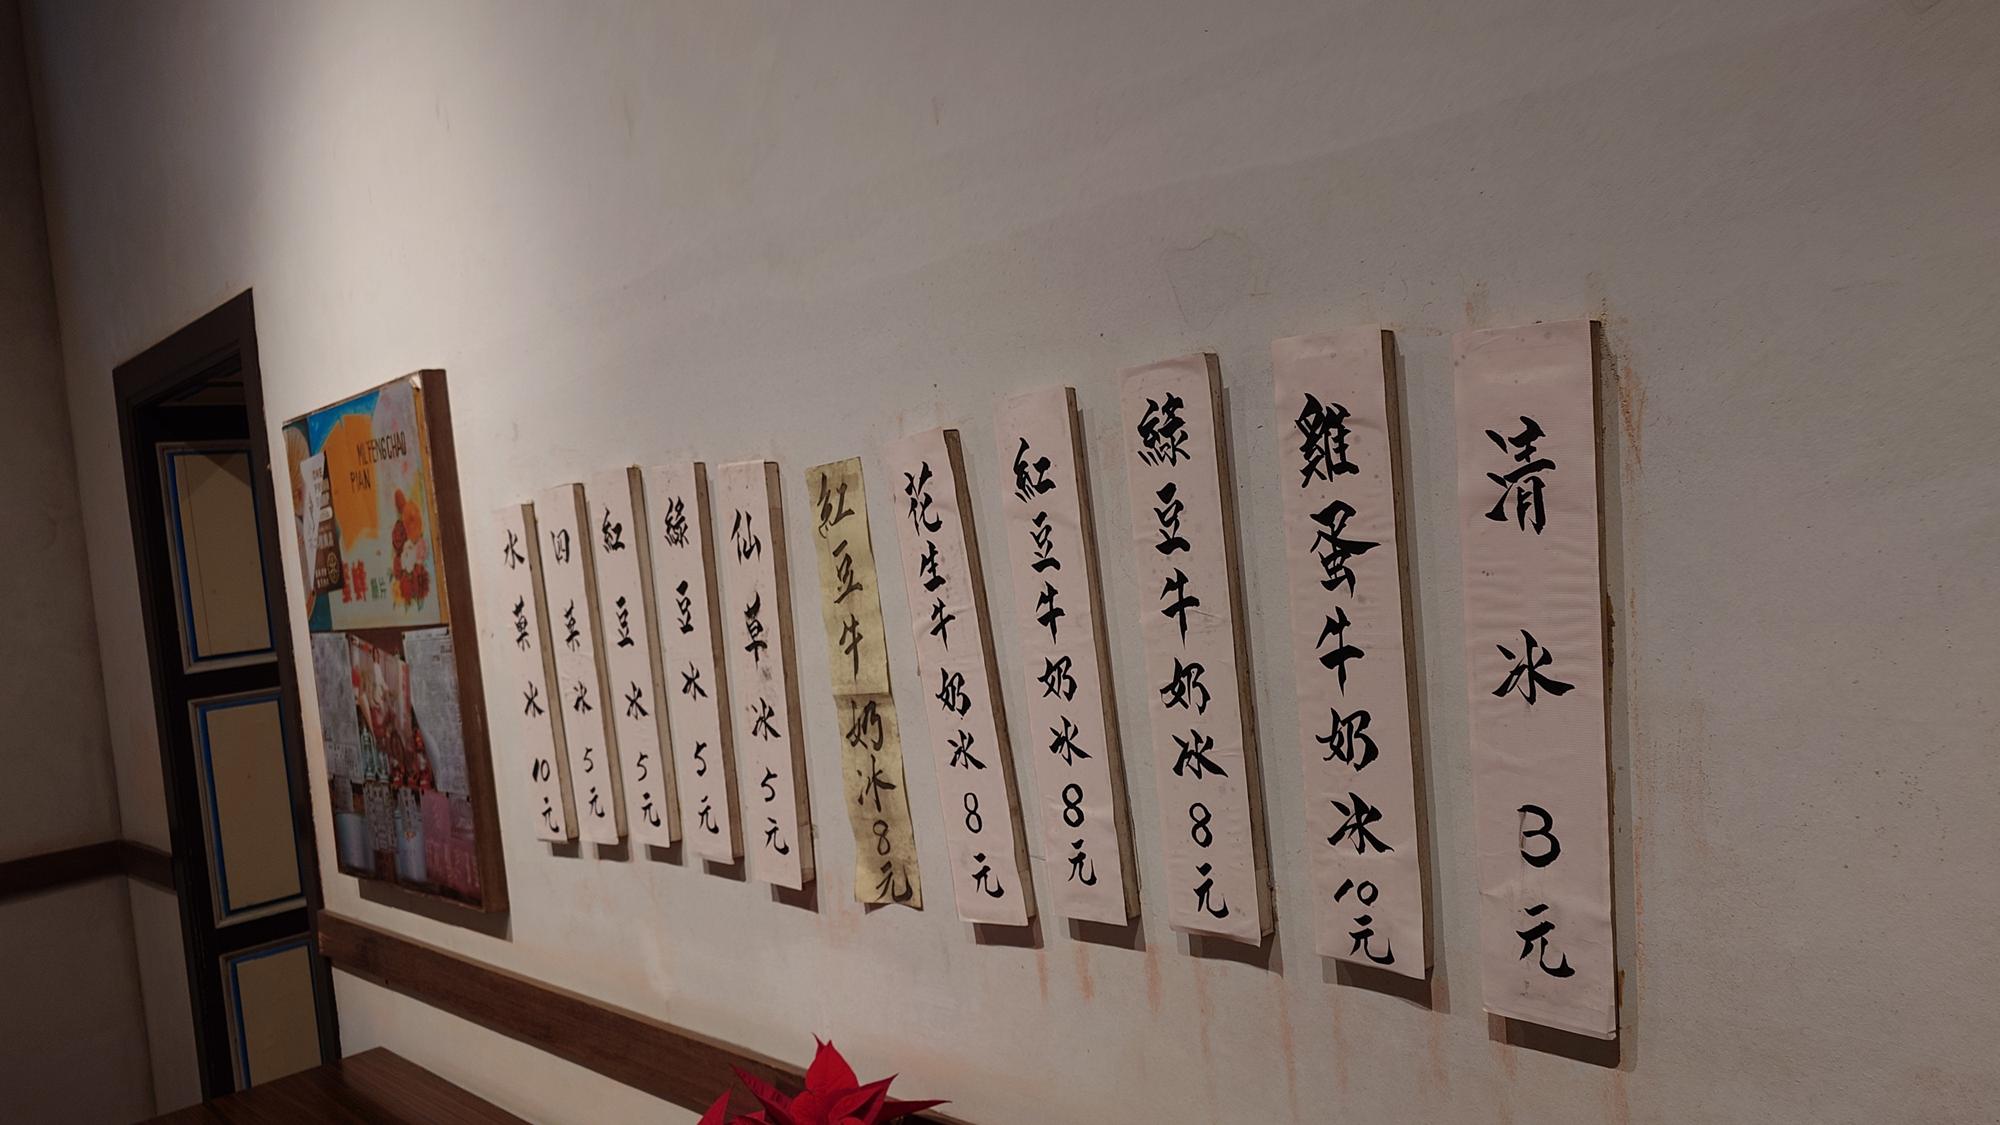 清冰3元
雞蛋牛奶冰10元
綠豆牛奶冰8元
紅豆牛奶冰8元
花生牛奶冰8元
紅豆牛奶冰8元
仙草冰5元
綠豆冰5元
紅豆冰5元
四菓冰5元
水菓冰10元
MI FENG CHAO
PIAN